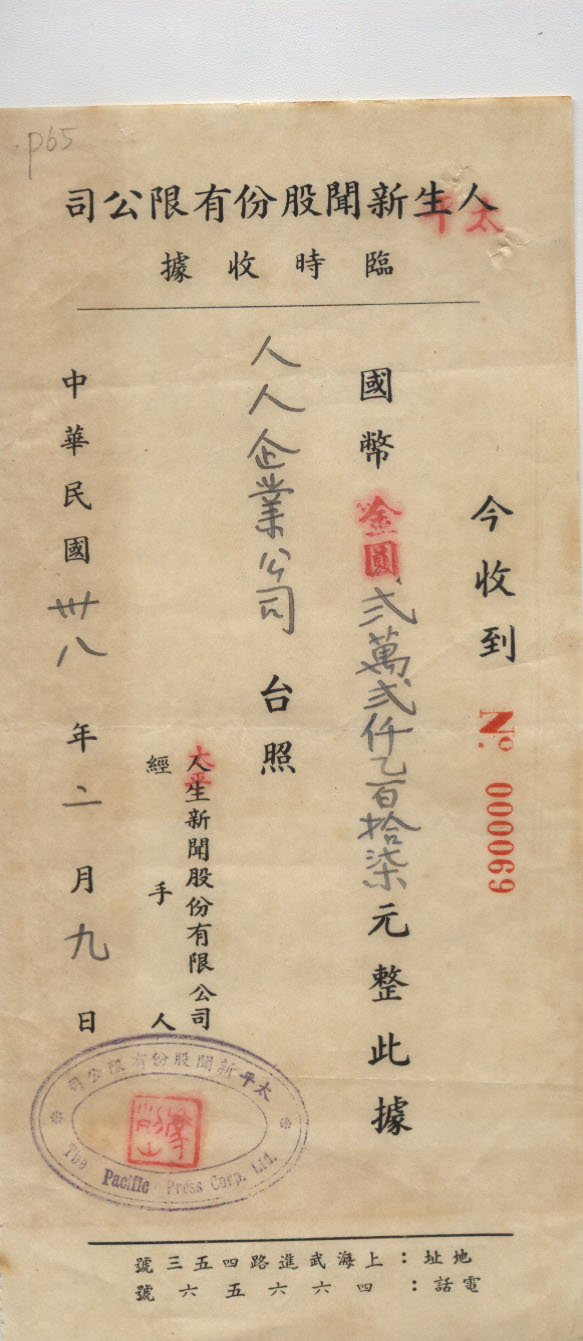 p65
人生新聞股份有限公司
太平
臨時收據
今收到 No. 000069
國幣金圓弍萬弍仟乙百拾柒元整此據
人人企業公司台照
太平
人生新聞股份有限公司
經手人
中華民國卅八年二月九日
太平新聞股份有限公司
The Pacific Press Corp. Ltd.
地址：上海武進路四五三號
電話：四六六五六號